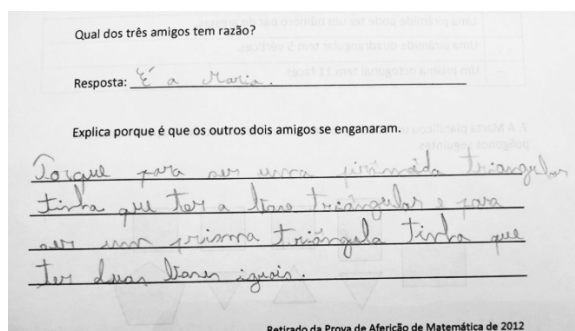 Qual dos três amigos tem razão?
Resposta: É a Maria.
Explica porque é que os outros dois amigos se enganaram.
Porque para ser uma pirâmida triangular
tinha que ter a base triângular e para
ser um prisma triângula tinha que
ter duas bases iguais.
Retirado da Prova de Aferição de Matemática de 2012